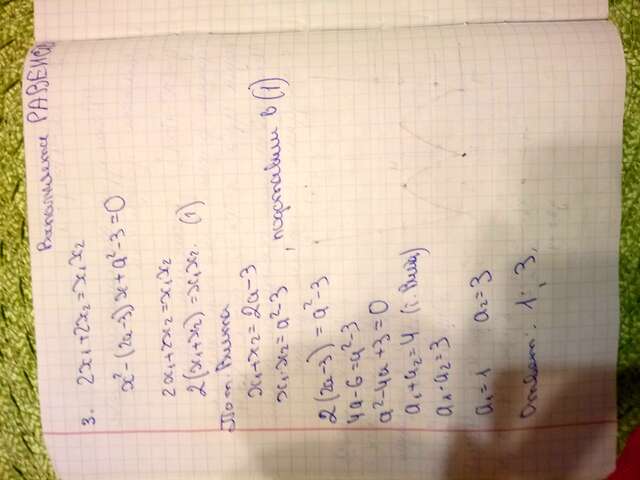 Выполняется РАВЕНСТ
3. 2x₁+2x₂=x₁x₂
x²-(2a-3)x+a²-3=0
2x₁+2x₂=x₁x₂
2(x₁+x₂)=x₁x₂. (1)
По т. Виета
x₁+x₂=2a-3
x₁·x₂=a²-3, подставим в (1)
2(2a-3)=a²-3
4a-6=a²-3
a²-4a+3=0
a₁+a₂=4 (т. Виета)
a₁·a₂=3
a₁=1 a₂=3
Ответ: 1; 3.